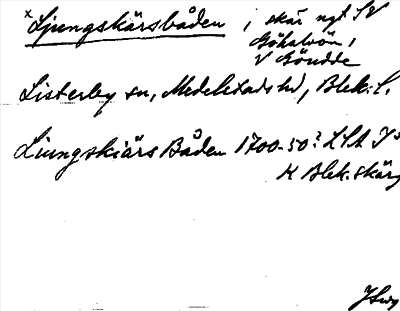 x Ljungskärsbåden, skär nyt SV
Gökalvön,
V Göudde
Listerby sn, Medelstads hd, Blek. l.
Liungskiärs Båden 1700-50? LSA
K Blek. skärg